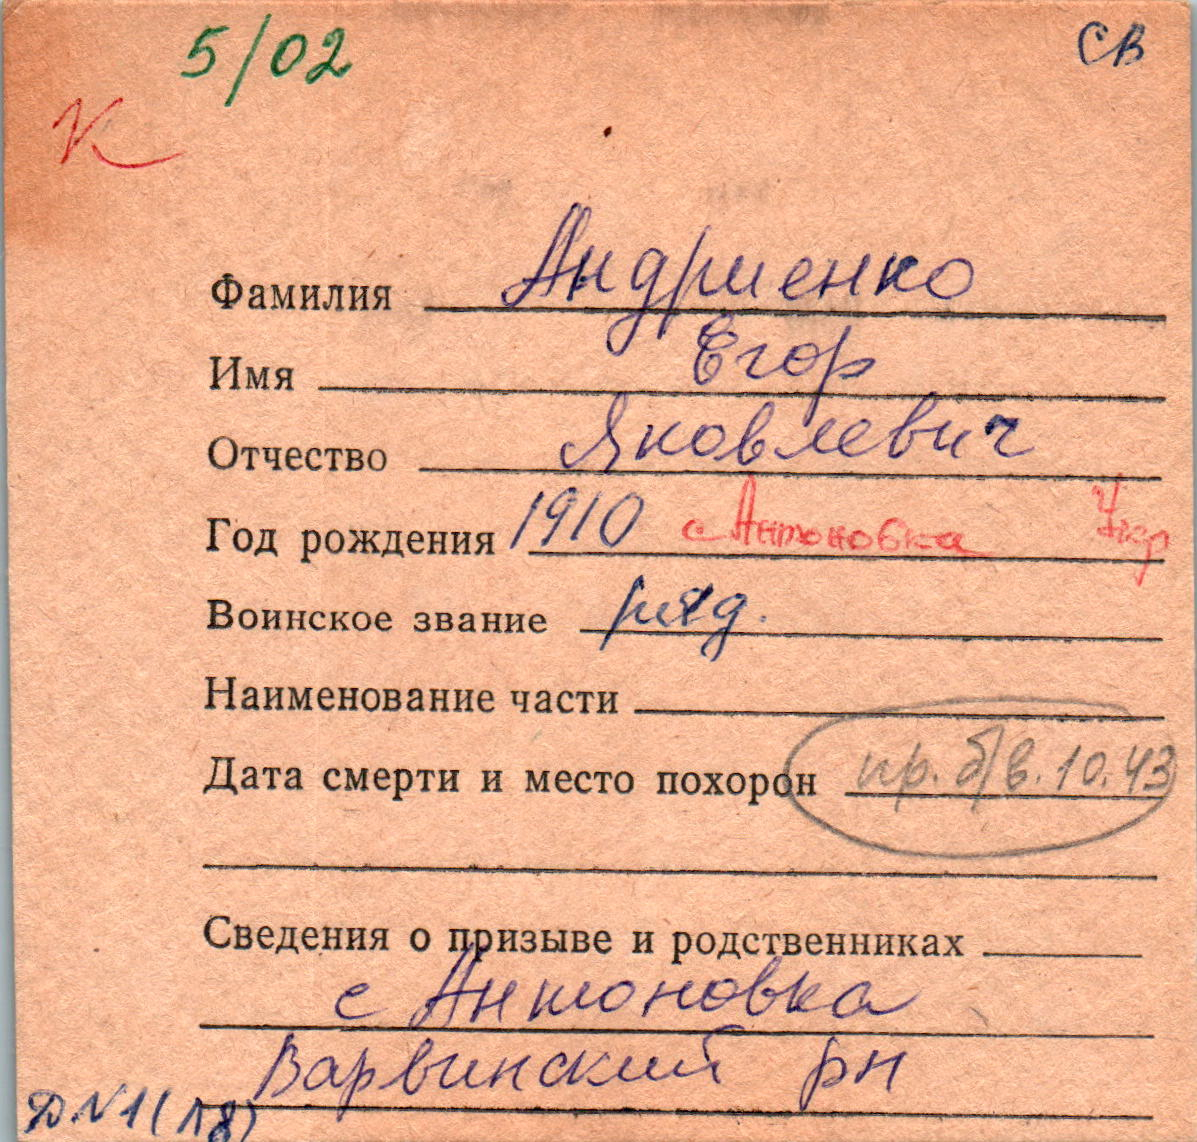 5/02
СВ
К
Фамилия Андриенко
Имя Егор
Отчество Яковлевич
Год рождения 1910 с Антоновка Укр
Воинское звание ряд.
Наименование части
Дата смерти и место похорон пр. б/в. 10.43
Сведения о призыве и родственниках
с Антоновка
Варвинский рн
Д.N1(л8)